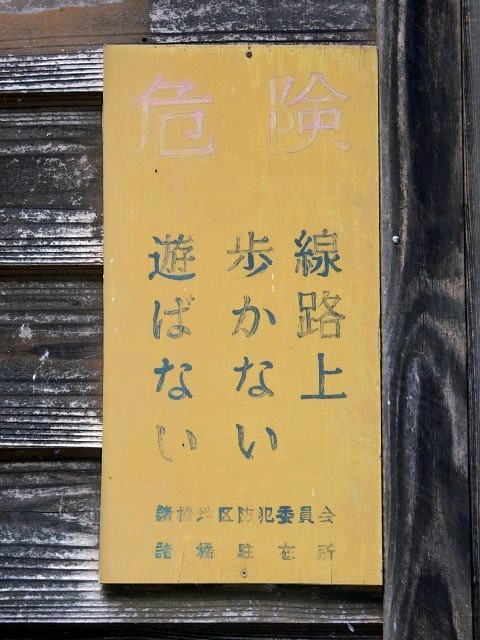 危険
線路上
歩かない
遊ばない
諸橋地区防犯委員会
諸橋駐在所